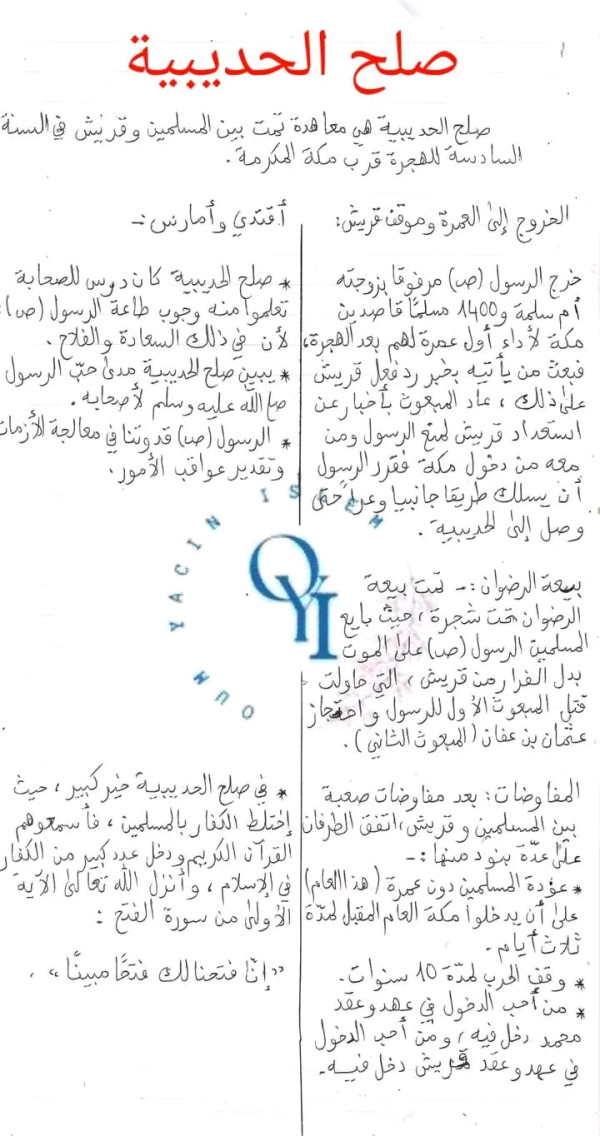 صلح الحديبية
صلح الحديبية هي معاهدة تمت بين المسلمين وقريش في السنة
السادسة للهجرة قرب مكة المكرمة.
الخروج إلى العمرة وموقف قريش:
خرج الرسول (ص) مرفوقا بزوجته
أم سلمة و1400 مسلمًا قاصدين
مكة لأداء أول عمرة لهم بعد الهجرة،
فبعث من يأتيه بخبر رد فعل قريش
على ذلك، عاد المبعوث بأخبار عن
استعداد قريش لمنع الرسول ومن
معه من دخول مكة فقرر الرسول
أن يسلك طريقا جانبيا وعرا حتى
وصل إلى الحديبية.
بيعة الرضوان:- تمت بيعة
الرضوان تحت شجرة، حيث بايع
المسلمين الرسول (ص) على الموت
بدل الفرار من قريش، التي حاولت
قتل المبعوث الأول للرسول و احتجاز
عثمان بن عفان (المبعوث الثاني).
المفاوضات: بعد مفاوضات صعبة
بين المسلمين و قريش، اتفق الطرفان
على عدّة بنود منها:-
* عودة المسلمين دون عمرة (هذا العام)
على أن يدخلوا مكة العام المقبل لمدة
ثلاث أيام.
* وقف الحرب لمدة 10 سنوات.
* من أحب الدخول في عهد وعقد
محمد دخل فيه، ومن أحب الدخول
في عهد وعقد قريش دخل فيه.
أقتدي و أمارس:-
* صلح الحديبية كان درس للصحابة
تعلموا منه وجوب طاعة الرسول (ص):
لأن في ذلك السعادة والفلاح.
* يبين صلح الحديبية مدى حبّ الرسول
صلى الله عليه وسلم لأصحابه.
* الرسول (ص) قدوتنا في معالجة الأزمات
وتقدير عواقب الأمور.
* في صلح الحديبية خير كبير، حيث
إختلط الكفار بالمسلمين، فأسمعوهم
القرآن الكريم ودخل عدد كبير من الكفار
في الإسلام، وأنزل الله تعالى الآية
الأولى من سورة الفتح:
"إنّا فتحنا لك فتحًا مبينًا".
OUM YACIN ISLEM
OYI